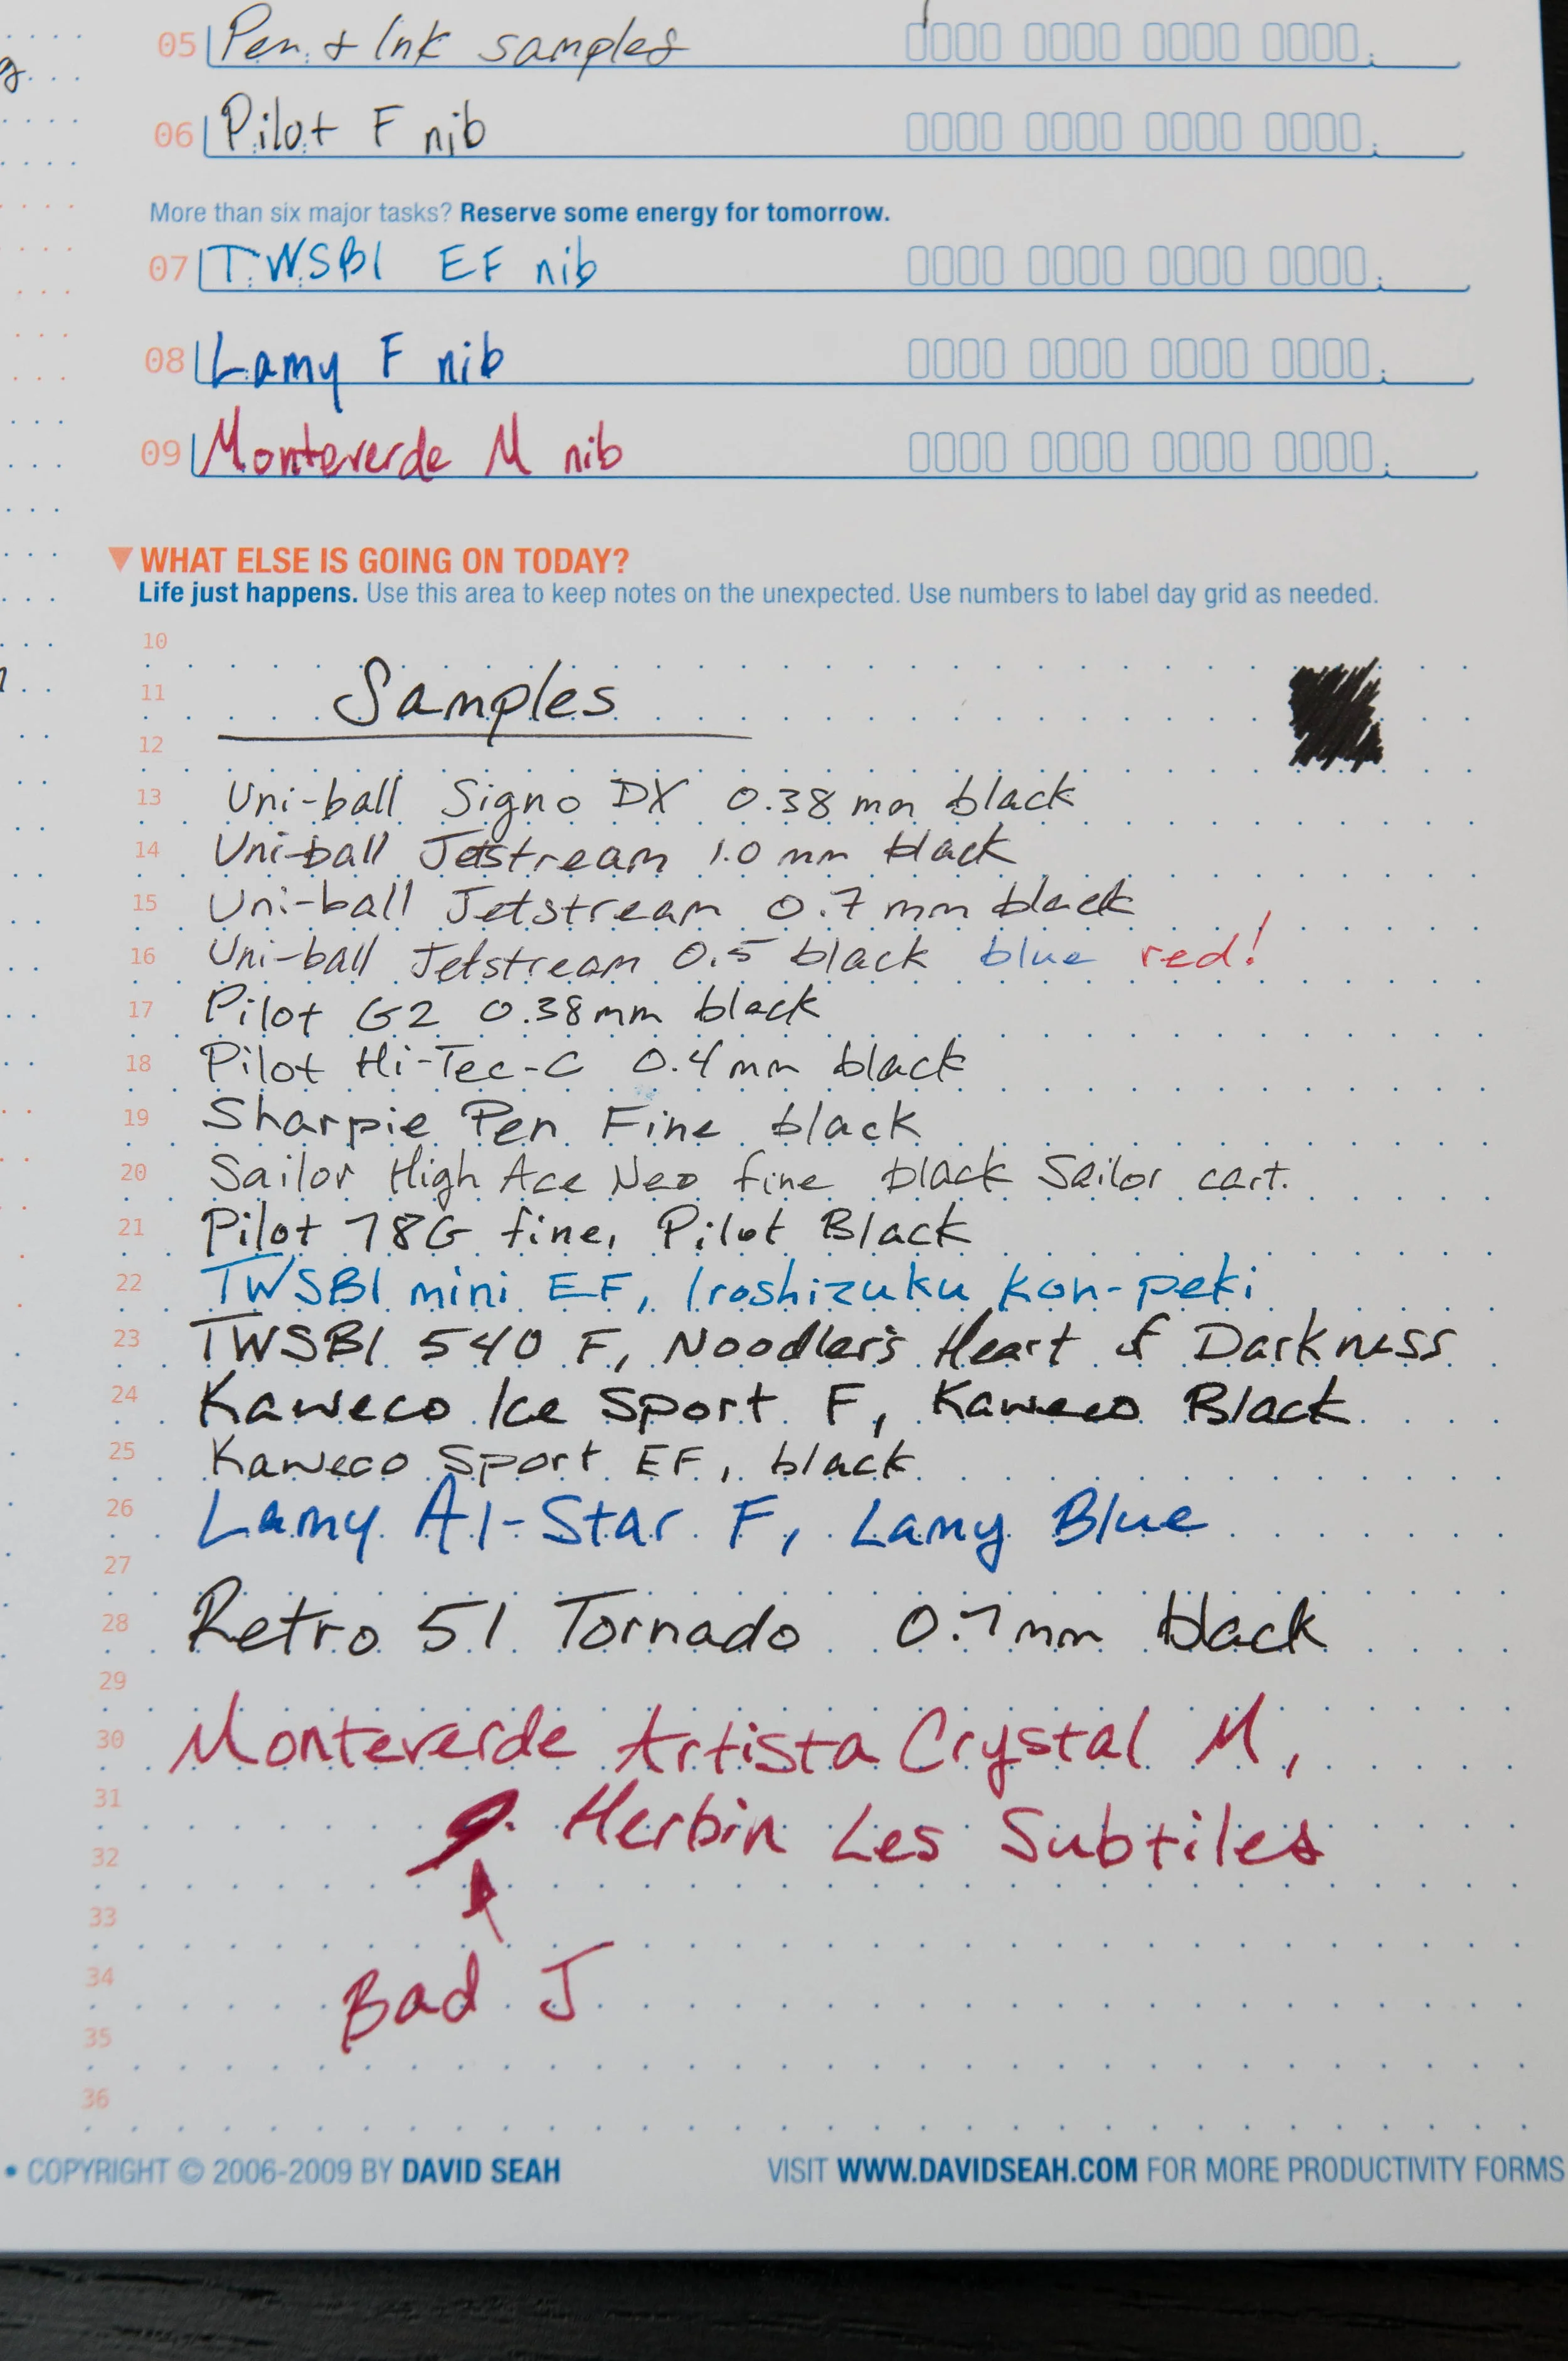 05 Pen & Ink samples
06 Pilot F nib
More than six major tasks? Reserve some energy for tomorrow.
07 TWSBI EF nib
08 Lamy F nib
09 Monteverde M nib
WHAT ELSE IS GOING ON TODAY?
Life just happens. Use this area to keep notes on the unexpected. Use numbers to label day grid as needed.
10
11 Samples
12
13 Uni-ball Signo DX 0.38 mm black
14 Uni-ball Jetstream 1.0 mm black
15 Uni-ball Jetstream 0.7 mm black
16 Uni-ball Jetstream 0.5 black blue red!
17 Pilot G2 0.38mm black
18 Pilot Hi-Tec-C 0.4mm black
19 Sharpie Pen Fine black
20 Sailor High Ace Neo fine black Sailor cart.
21 Pilot 78G fine, Pilot Black
22 TWSBI mini EF, Iroshizuku Kon-peki
23 TWSBI 540 F, Noodler's Heart of Darkness
24 Kaweco Ice Sport F, Kaweco Black
25 Kaweco Sport EF, black
26 Lamy Al-Star F, Lamy Blue
27
28 Retro 51 Tornado 0.7mm black
29
30 Monteverde Artista Crystal M,
31 Herbin Les Subtiles
32
33
34 Bad J
35
36
• COPYRIGHT © 2006-2009 BY DAVID SEAH VISIT WWW.DAVIDSEAH.COM FOR MORE PRODUCTIVITY FORMS